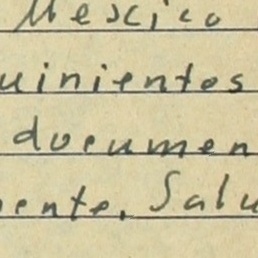 Mexico
uinientos
documen
ente, Salu